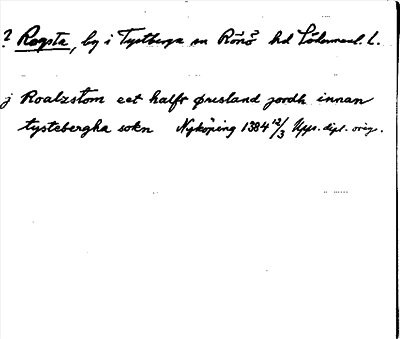 ? Rogsta, by i Tystberga sn Rönö hd Södermanl. L.
j Roalzstom eet halft øresland jordh innan
tystebergha sokn Nyköping 1384 12/3 Upps. dipl. orig.